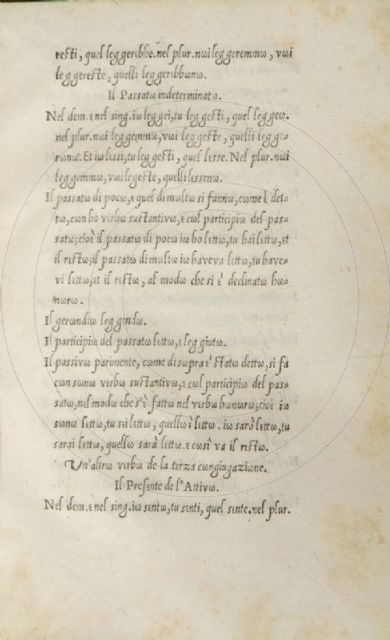 resti, quel leggerεbbe. nel plur. nωi leggeremmω, vωi
leggereste, quelli leggeribbωnω.
Il Passatω indeterminatω.
Nel dem. ε nel sing. iω leggei, tu leggesti, quel leggeω.
nel plur. nωi leggemmω, vωi leggeste, quelli legge-
rωnω. Et iω lissi, tu leggesti, quel lesse. Nel plur. nωi
leggemmω, vωi legeste, quelli lessenω.
Il passatω di pocω, ε quel di mωltω si fannω, cωme ὲ det-
tω, cωn ho vεrbω sustantivω, ε cωl participiω del pas-
satω; ciοὲ il passatω di pocω iω ho lettω, tu hai lettω, et
il rεstω; il passatω di mωltω iω haveva lettω, tu have-
vi lettω, et il rεstω, al modω che si ὲ declinatω hω-
nωrω.
Il gerωndiω leggεndω.
Il participiω del passatω lettω, ε legiutω.
Il passivω parimente, cωme di supra ὲ statω dettω, si fa
cωn sωnω vεrbω sustantivω, ε cωl participiω del pas-
satω, nel modω che s'ὲ fattω nel vεrbω hωnωrω, ciοὲ iω
sωnω lettω, tu sεi lettω, quellω ὲ lettω. iω sarὸ lettω, tu
sarai lettω, quellω sarà lettω. ε cωsì va il rεstω.
Un'altrω vεrbω de la tεrza cωngiugaziωne.
Il Presεnte de l'Attivω.
Nel dem. ε nel sing. iω sεntω, tu sεnti, quel sεnte. nel plur.